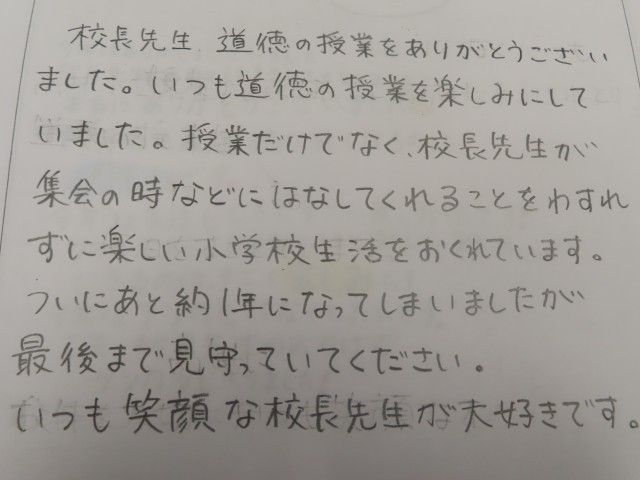 校長先生、道徳の授業をありがとうござい
ました。いつも道徳の授業を楽しみにして
いました。授業だけでなく、校長先生が
集会の時などにはなしてくれることをわすれ
ずに楽しい小学校生活をおくれています。
ついにあと約1年になってしまいましたが
最後まで見守っていてください。
いつも笑顔な校長先生が大好きです。